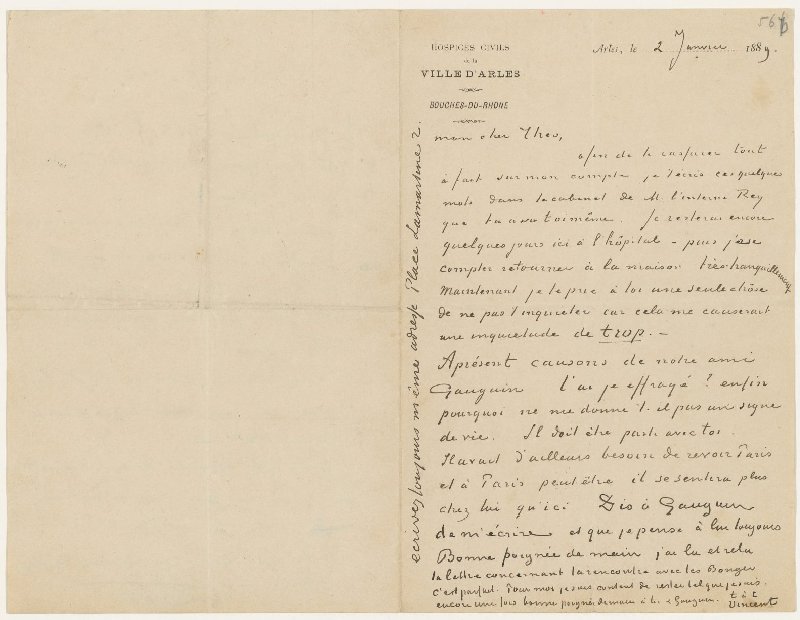 567
HOSPICES CIVILS
de la
VILLE D'ARLES
BOUCHES-DU-RHONE
Arles, le 2 Janvier 1889.
mon cher Theo,
afin de te rassurer tout
à fait sur mon compte je t'ecris ces quelques
mots dans le cabinet de M. l'interne Rey
que tu a vu toimême. Je resterai encore
quelques jours ici à l'hôpital – puis j'ose
compter retourner à la maison très tranquillement
Maintenant je te prie à toi une seule chôse
de ne pas t'inquieter car cela me causerait
une inquietude de trop. –
Apresent causons de notre ami
Gauguin l'ai je effrayé? enfin
pourquoi ne me donne t-il pas un signe
de vie. Il doit être parti avec toi.
Il avait d'ailleurs besoin de revoir Paris
et à Paris peut être il se sentira plus
chez lui qu'ici Dis à Gauguin
de m'écrire et que je pense à lui toujours
Bonne poignée de main j'ai lu et relu
ta lettre concernant la rencontre avec les Bonger
C'est parfait. Pour moi je suis content de rester tel que je suis.
encore une fois bonne poignée de main à toi & Gauguin. t. à t.
Vincent
ecrivez toujours même adresse Place Lamartine 2.